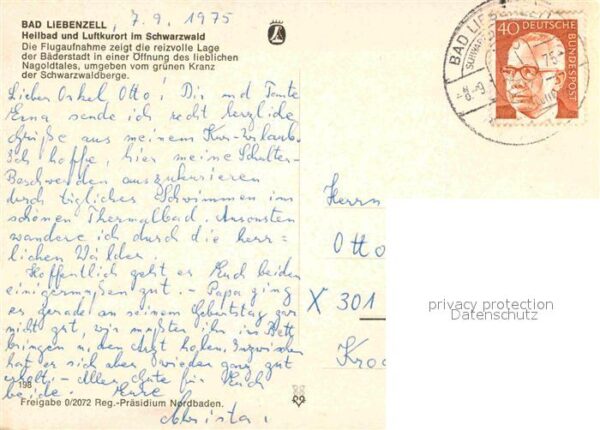 BAD LIEBENZELL, 7.9.1975
Heilbad und Luftkurort im Schwarzwald
Die Flugaufnahme zeigt die reizvolle Lage
der Bäderstadt in einer Öffnung des lieblichen
Nagoldtales, umgeben vom grünen Kranz
der Schwarzwaldberge.
Lieber Onkel Otto! Dir und Tante
Erna sende ich recht herzliche
Grüße aus meinem Kur-Urlaub.
Ich hoffe, hier meine Schulter-
Beschwerden auszukurieren
durch tägliches Schwimmen im
schönen Thermalbad. Ansonsten
wandere ich durch die herr=
lichen Wälder.
Hoffentlich geht es Euch beiden
einigermaßen gut. - Papa ging
es gerade an seinem Geburtstag gar
nicht gut, wir mußten ihn ins Bett
bringen u. den Arzt holen. Inzwischen
hat er sich aber wieder ganz gut
erholt. - Alles Gute für Euch
beide. Eure
Christa.
198
Freigabe 0/2072 Reg.-Präsidium Nordbaden.
BAD LIEBENZELL
40
DEUTSCHE
BUNDESPOST
Herrn
Otto
X 301
Kro
privacy protection
Datenschutz